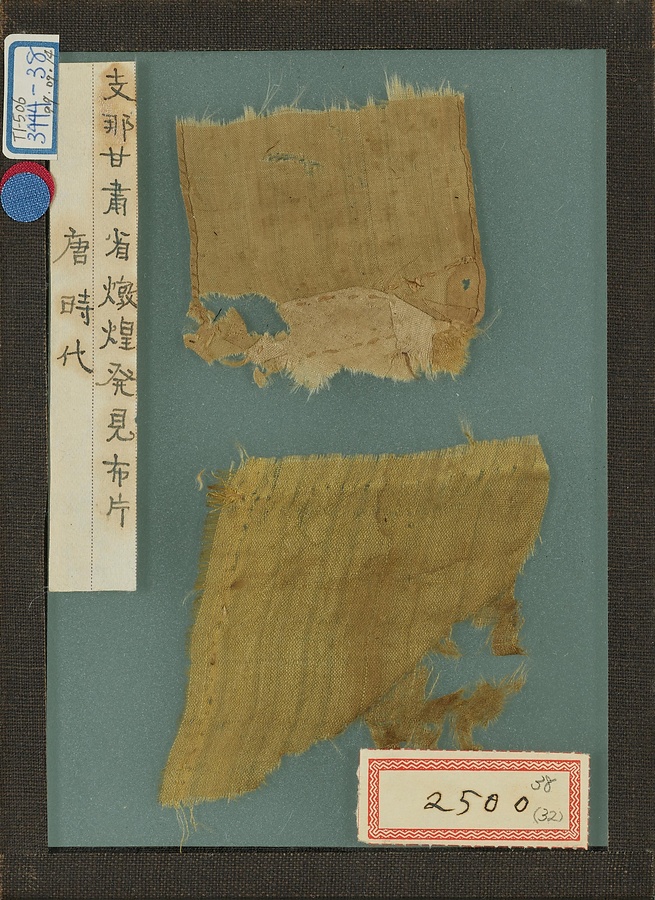 支那甘肅省燉煌発見布片
唐時代
TI-506
3444-38
2500
38
(32)